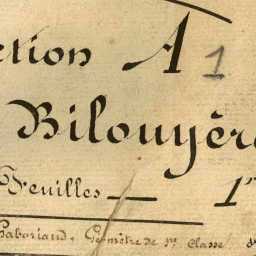 ction A 1
Bilouyère
Feuilles — 1re
Gaboriaud, Géomètre de 1re Classe